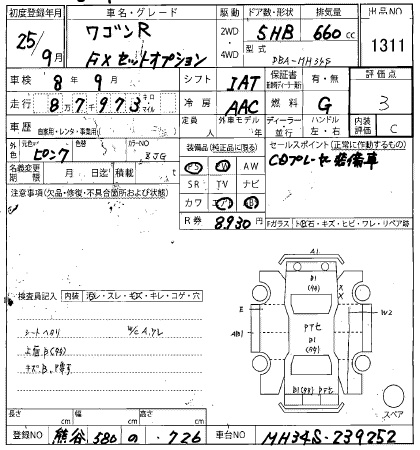 初度登録年月 車名・グレード 駆動 ドア数・形状 排気量 出品NO
25年9月 ワゴンR 2WD 5HB 660cc 1311
FXセットオプション 4WD 型式 DBA-MH34S
車検 8年9月 シフト IAT 保証書 有・無 評価点 3
走行 87973 キロ マイル 冷房 AAC 燃料 G
車歴 自家用・レンタ・事業用 定員 人 外車モデル 年 ディーラー 並行 ハンドル 左・右 内装評価 C
外色 元色 ピンク 色替 カラーNO 8JG 装備品(純正品に限る) セールスポイント(正常に作動するもの)
名義変更期限 月 日迄 積載 PS PW AW CDプレーヤー装備車
注意事項(欠品・修復・不具合箇所および状態) SR TV ナビ
カワ エアB
R券 8930 円 Fガラス トビ石・キズ・ヒビ・ワレ・リペア跡
A1
検査員記入 内装 汚レ・スレ・キズ・キレ・コゲ・穴
B1
E W2
シートヘタリ
AB1 PTセ
B1
スペア
長さ cm 幅 cm 高さ cm
登録NO 熊谷 580 の ・726 車台NO MH34S-239252